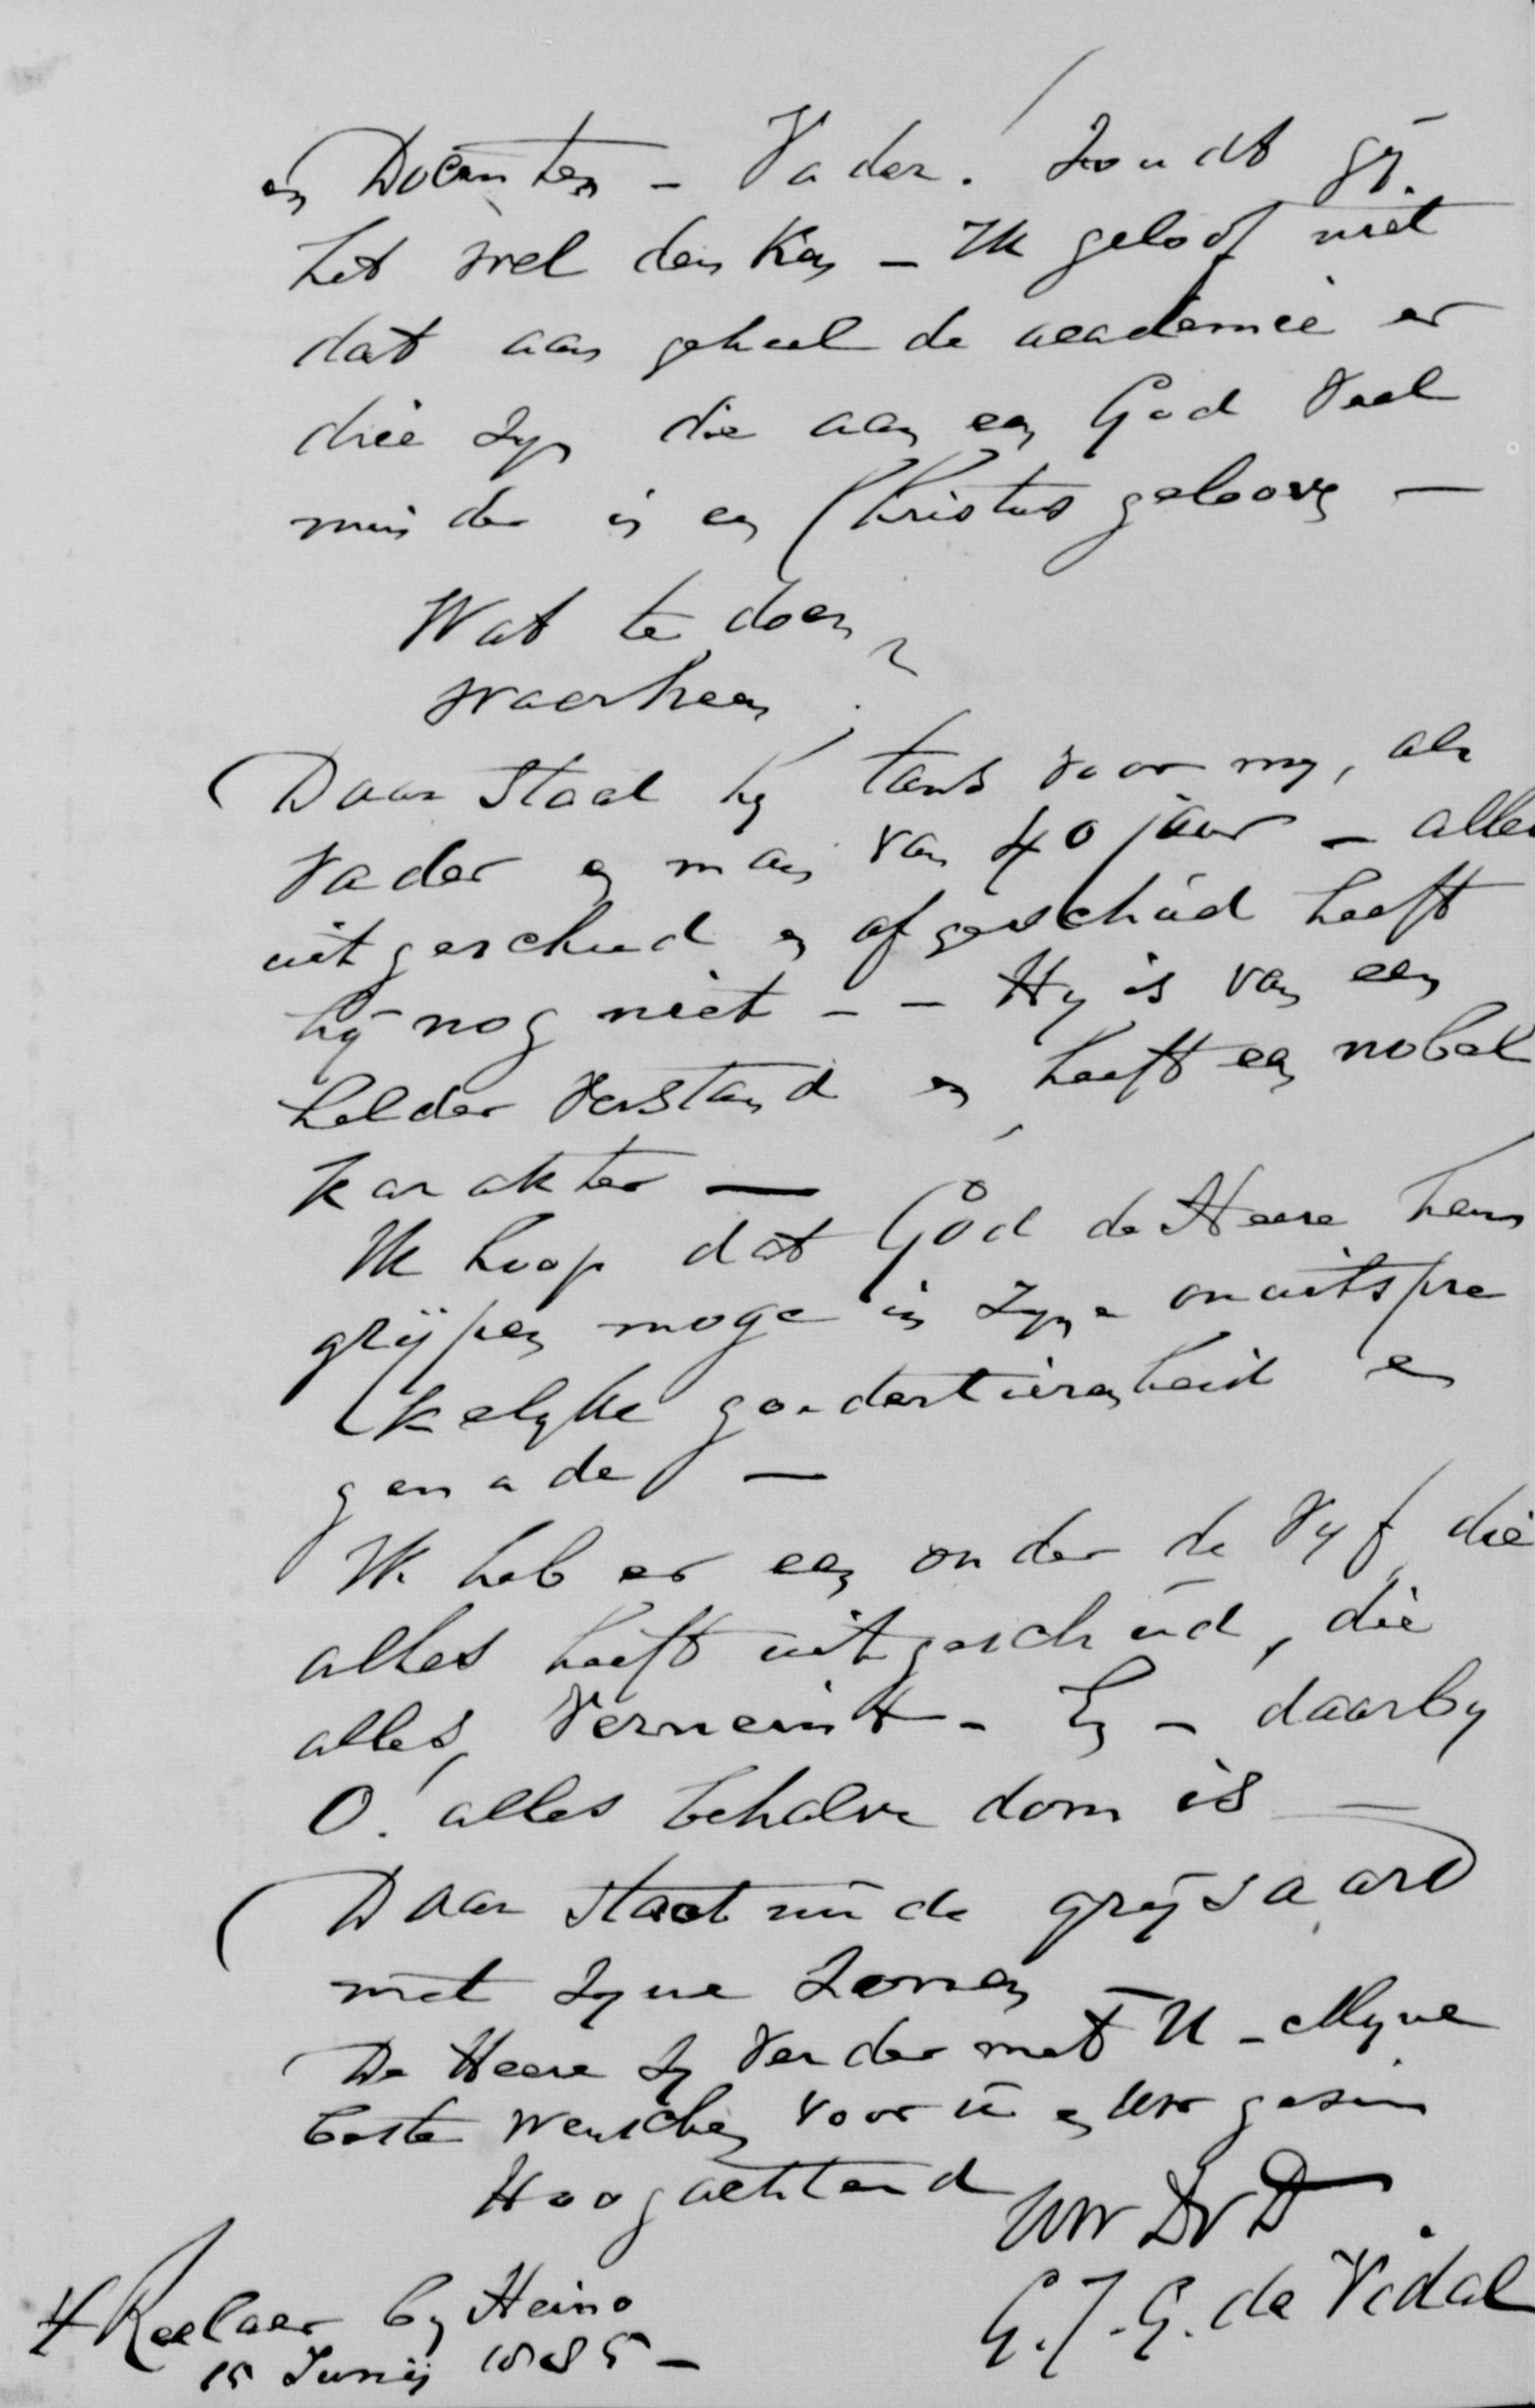 en Docenten - Vader! Zoudt gij
het wel denken - Ik geloof niet
dat aan geheel de academie er
drie zyn die aan een God veel
minder in een Christus gelooven -
Wat te doen?
waarheen?
Daar staat hy tans voor my, als
vader en man van 40 jaar - alles
uitgeschud en afgeschud heeft
hy nog niet - - Hy is van een
helder verstand en heeft een nobel
karakter -
Ik hoop dat God de Heere hem
grijpen moge in zyne onuitspre
kelyke goedertierenheid en
genade -
Ik heb er een onder de vyf die
alles heeft uitgeschud, die
alles, verneint - En - daarby
O! alles behalve dom is -
Daar staat nu de grijsaard
met zyne zonen -
De Heere zy verder met U - Myne
beste wenschen voor u en uw gezin
Hoogachtend
Uw Dv D
G. J. G. de Vidal
by Heino
15 Junij 1885 -